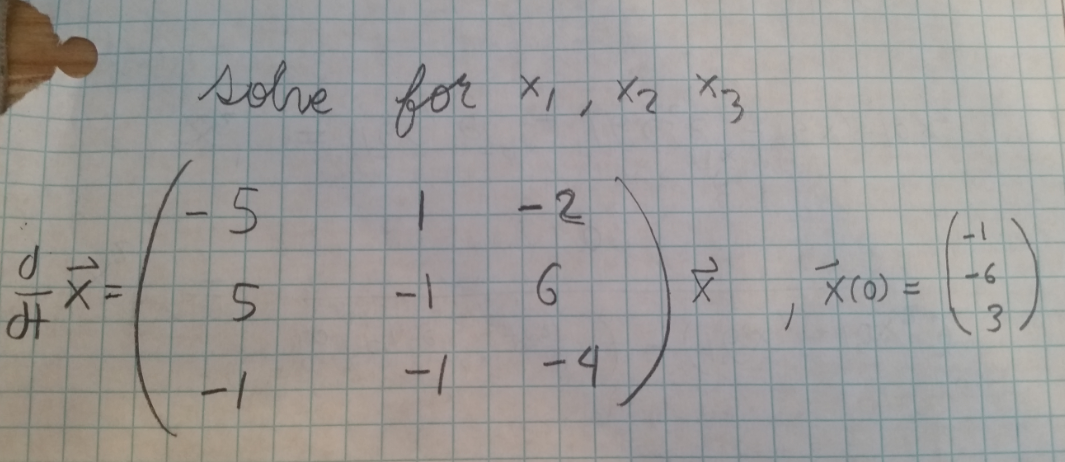 solve for x₁, x₂ x₃
d/dt x⃗ = ( -5 1 -2
5 -1 6
-1 -1 -4 ) x⃗ , x⃗(0) = ( -1
-6
3 )